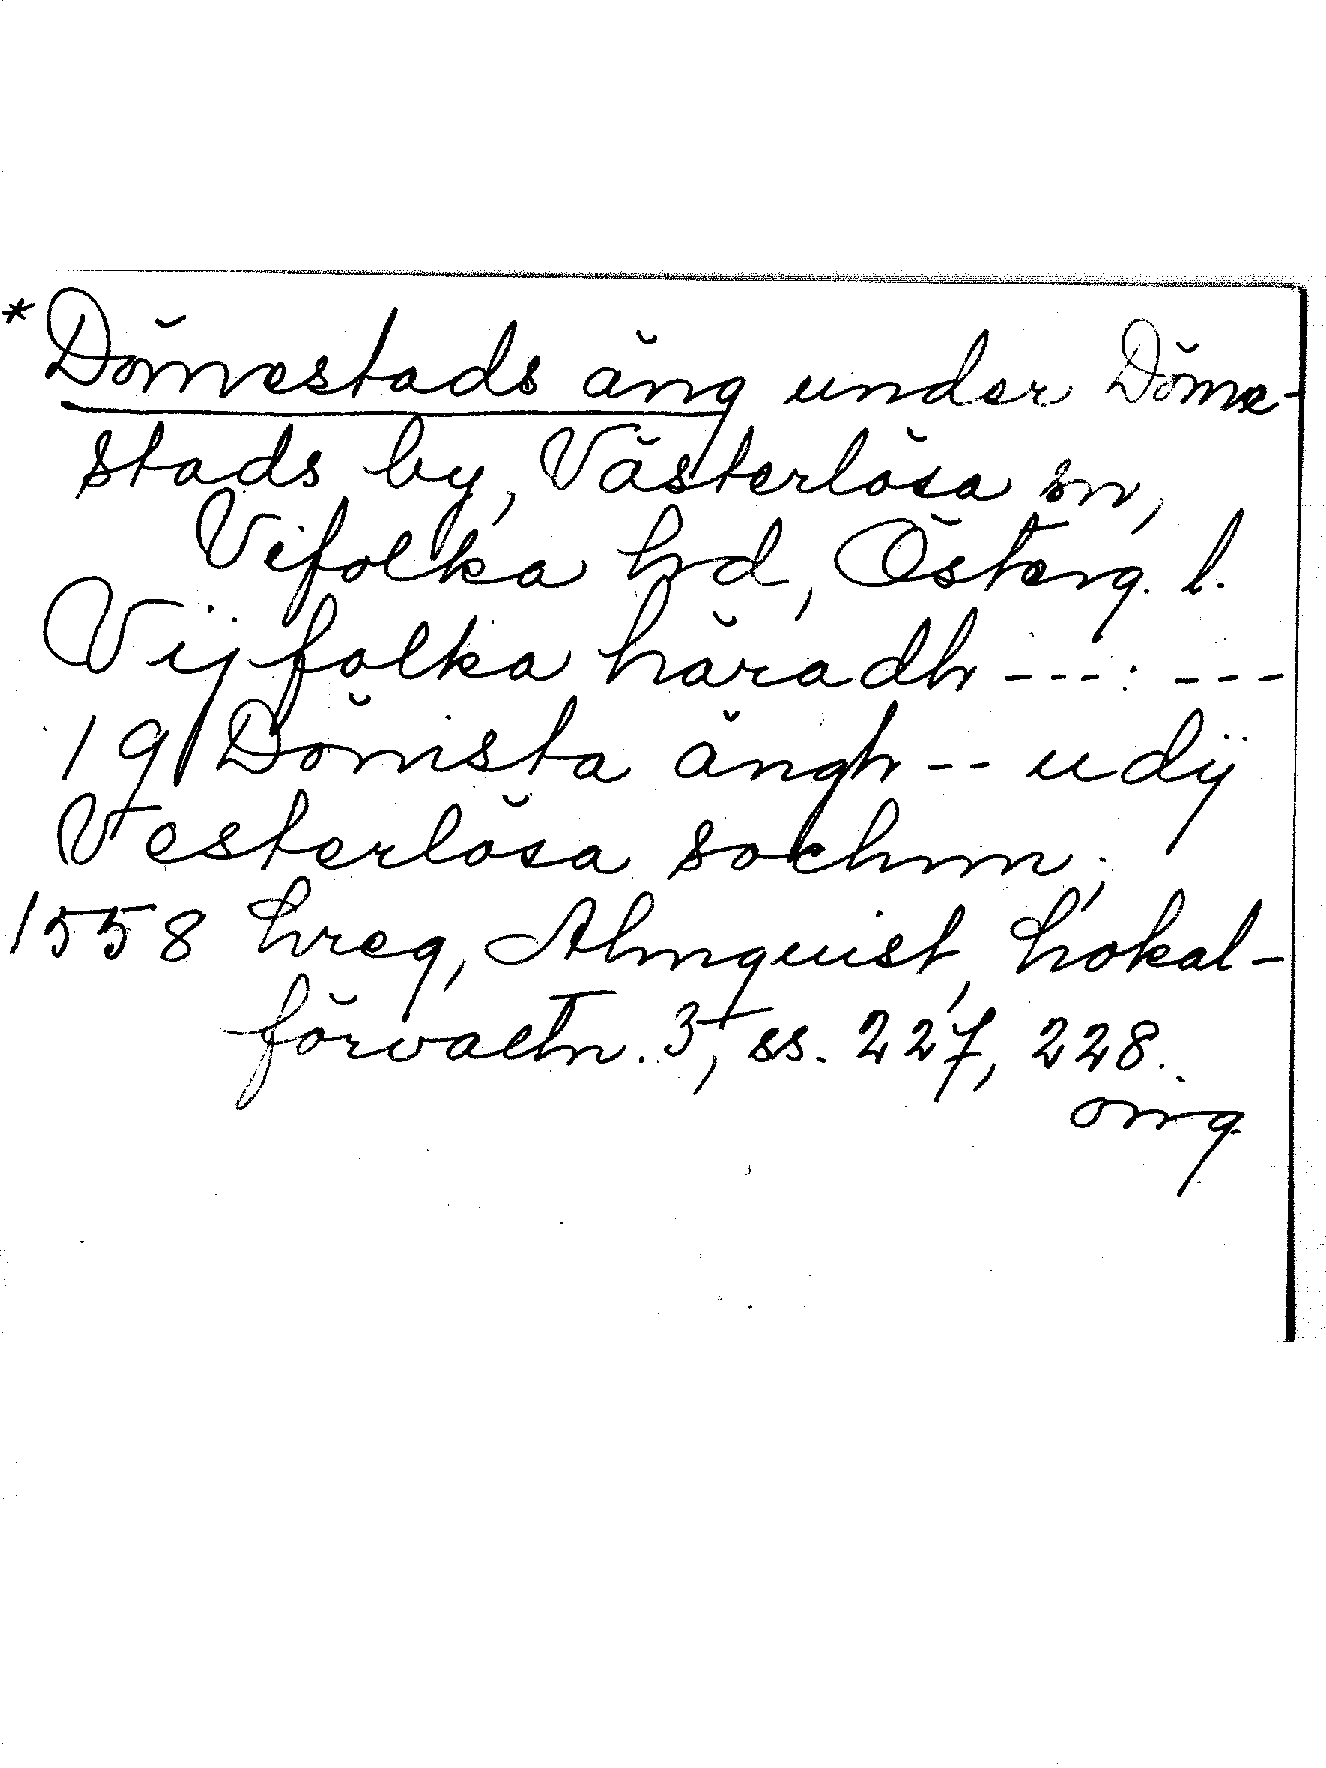 *Dömestads äng under Döme-
stads by, Västerlösa sn,
Vifolka hd, Österg. l.
Vijfolka häradh ---: ---
19 Dömsta ängh -- udÿ
Vesterlösa sochnn;
1558 hreg, Almquist, Lokal-
förvaltn. 3, ss. 227, 228.